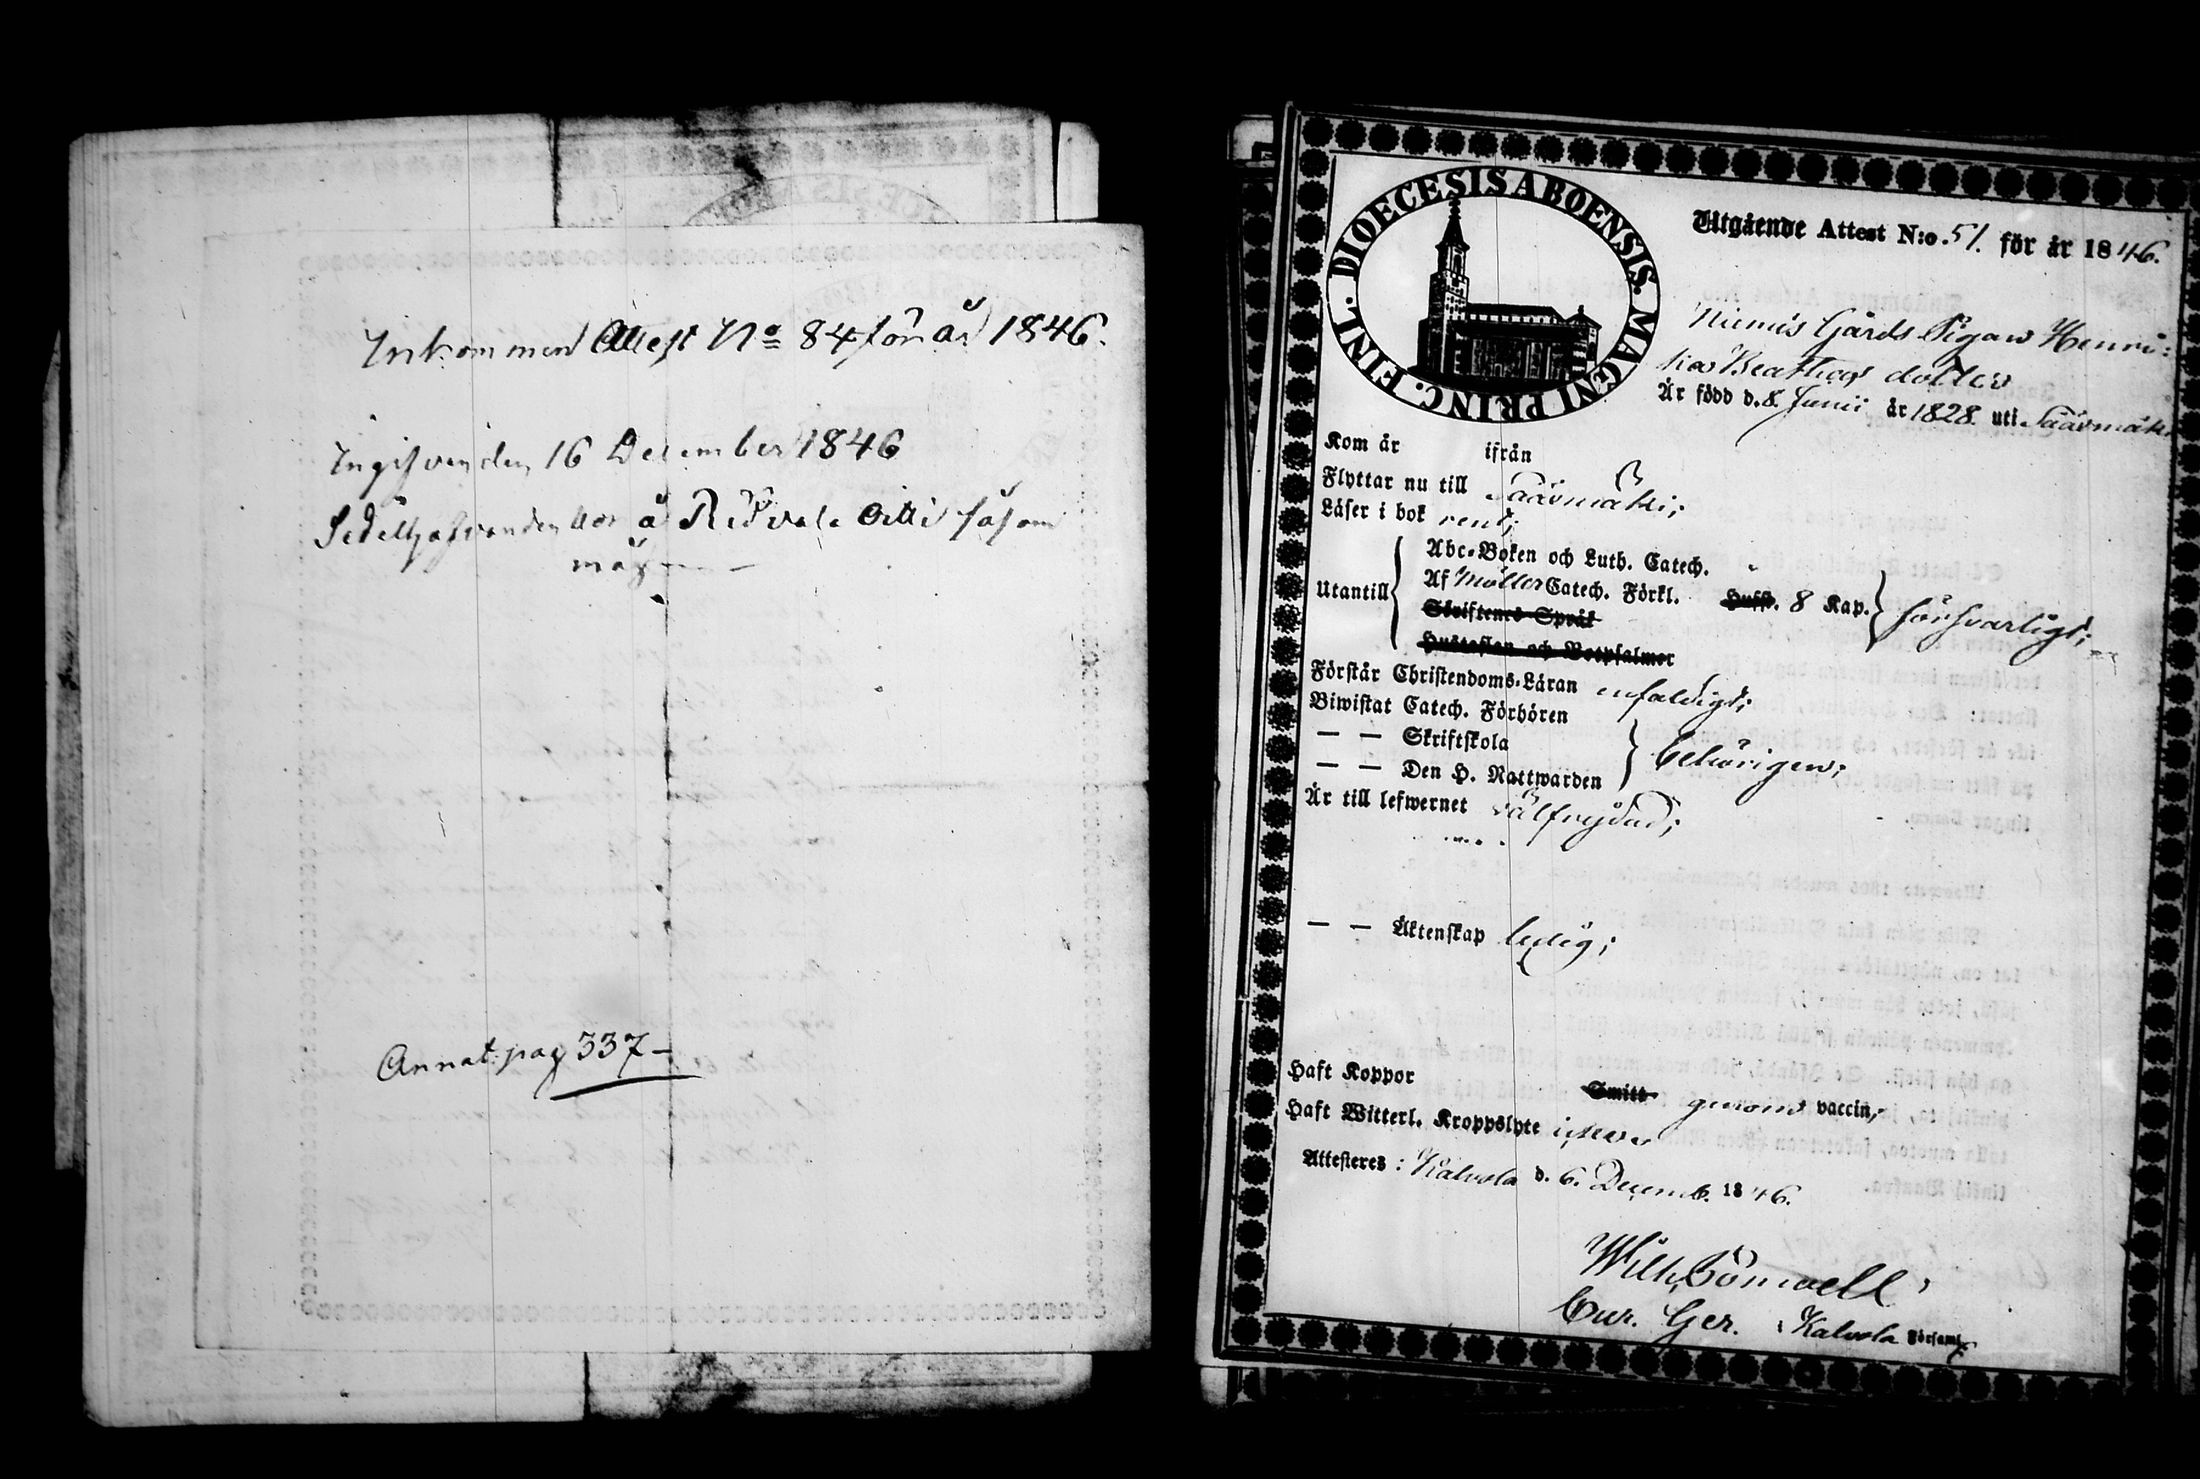 Inkommen Attest No 84 för år 1846.
Ingifven den 16 December 1846
Sedelhafvanden bor å Ridvala Oitti såsom
Annat. pag 337 –
DIOECESIS ABOENSIS. MAGNI PRINC. FINL.
Utgående Attest N:o. 51. för år 1846.
Niemis Gårds Pigan Henri-
ka Beatha dotter
Är född d. 8. Junii år 1828. uti Sääxmäki
Kom år ifrån
Flyttar nu till Sääxmäki;
Läser i bok rent;
Utantill
Abc-Boken och Luth. Catech.
Af Möllers Catech. Förkl. Huff. 8 Kap. försvarligt;
Skriftenes Språk
Hustaflan och Botpsalmer
Förstår Christendoms-Läran enfaldigt;
Biwistat Catech. Förhören
— — Skriftskola behörigen;
— — Den H. Nattwarden
Är till lefwernet välfrejdad;
— — Äktenskap ledig;
Haft Koppor Smitt genom vaccin;
Haft Witterl. Kroppslyte icke
Attesteres: Kalvola d. 6. Decemb. 1846.
Wilh.
Cur. Ger. i Kalvola Församl.